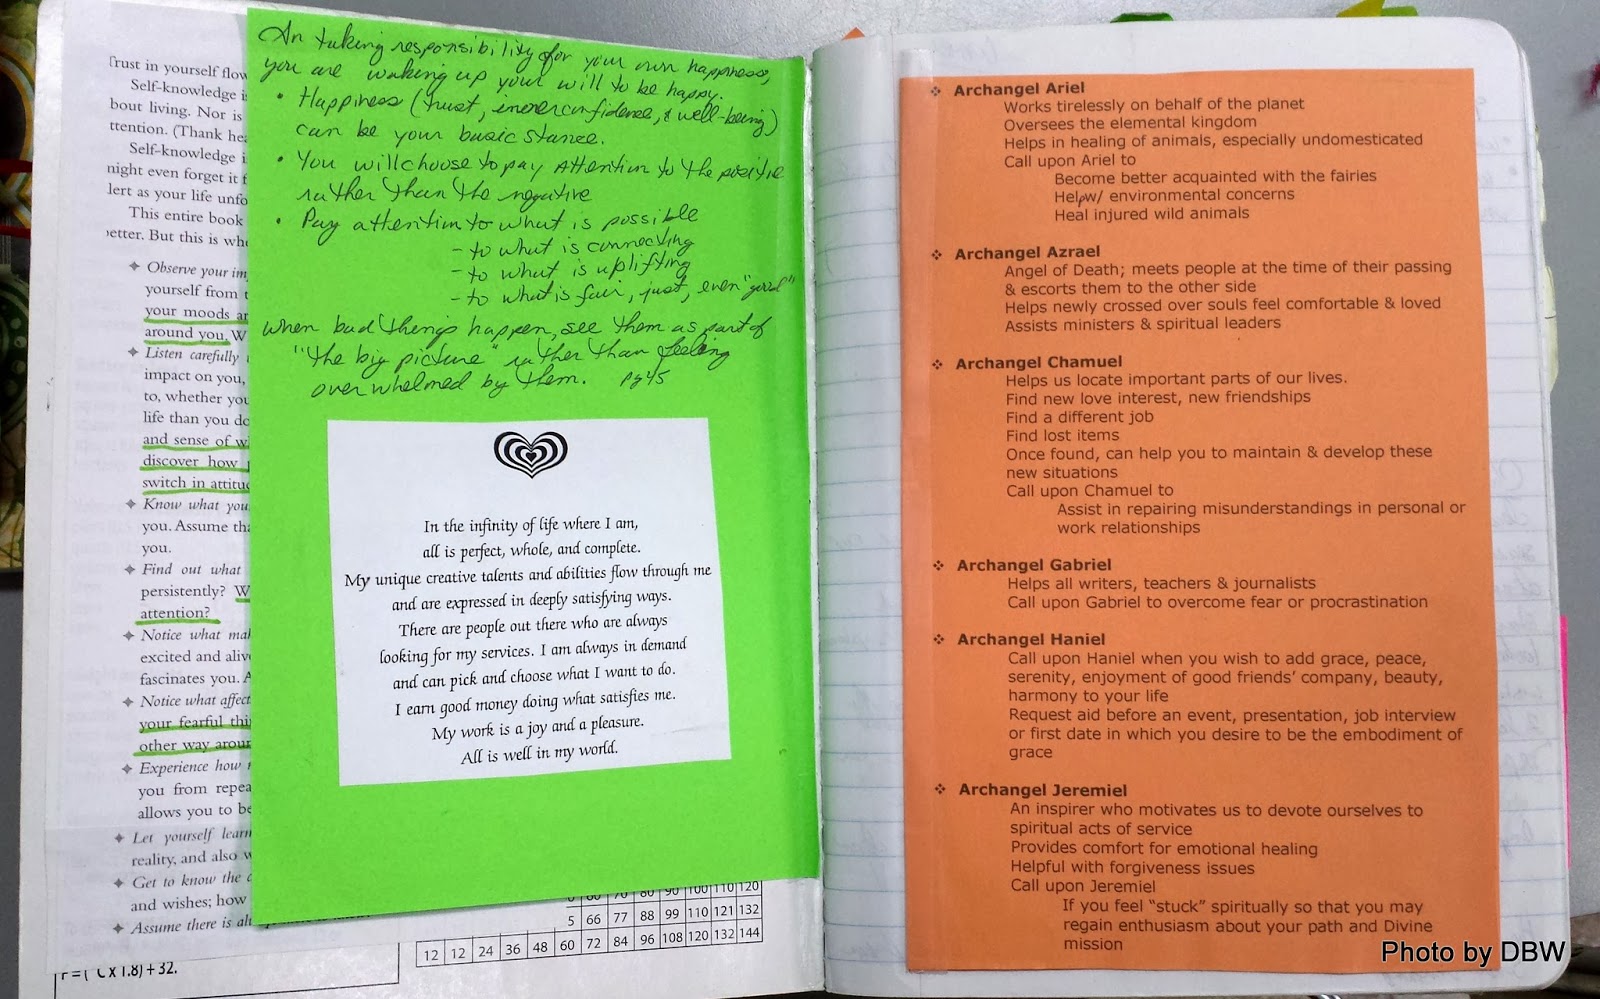 Trust in yourself flow
Self-knowledge i
bout living. Nor is
ttention. (Thank hea
Self-knowledge i
night even forget it f
lert as your life unfo
This entire book
etter. But this is whe
Observe your im
yourself from t
your moods ar
around you. W
Listen carefully
impact on you,
to, whether you
life than you do
and sense of w
discover how
switch in attitud
Know what you
you. Assume tha
you.
Find out what
persistently? W
attention?
Notice what mal
excited and aliv
fascinates you. A
Notice what affect
your fearful thi
other way arour
Experience how
you from repea
allows you to be
Let yourself learn
reality, and also w
Get to know the
and wishes; how
Assume there is al
F = ( C x 1.8) + 32.
In taking responsibility for your own happiness,
you are waking up your will to be happy.
• Happiness (trust, inner confidence, & well-being)
can be your basic stance.
• You will choose to pay attention to the positive
rather than the negative
• Pay attention to what is possible
- to what is connecting
- to what is uplifting
- to what is fair, just, even "good"
When bad things happen, see them as part of
"the big picture" rather than feeling
overwhelmed by them. pg 45
In the infinity of life where I am,
all is perfect, whole, and complete.
My unique creative talents and abilities flow through me
and are expressed in deeply satisfying ways.
There are people out there who are always
looking for my services. I am always in demand
and can pick and choose what I want to do.
I earn good money doing what satisfies me.
My work is a joy and a pleasure.
All is well in my world.
60 70 80 90 100 110 120
5 66 77 88 99 110 121 132
12 12 24 36 48 60 72 84 96 108 120 132 144
❖ Archangel Ariel
Works tirelessly on behalf of the planet
Oversees the elemental kingdom
Helps in healing of animals, especially undomesticated
Call upon Ariel to
Become better acquainted with the fairies
Helpw/ environmental concerns
Heal injured wild animals
❖ Archangel Azrael
Angel of Death; meets people at the time of their passing
& escorts them to the other side
Helps newly crossed over souls feel comfortable & loved
Assists ministers & spiritual leaders
❖ Archangel Chamuel
Helps us locate important parts of our lives.
Find new love interest, new friendships
Find a different job
Find lost items
Once found, can help you to maintain & develop these
new situations
Call upon Chamuel to
Assist in repairing misunderstandings in personal or
work relationships
❖ Archangel Gabriel
Helps all writers, teachers & journalists
Call upon Gabriel to overcome fear or procrastination
❖ Archangel Haniel
Call upon Haniel when you wish to add grace, peace,
serenity, enjoyment of good friends' company, beauty,
harmony to your life
Request aid before an event, presentation, job interview
or first date in which you desire to be the embodiment of
grace
❖ Archangel Jeremiel
An inspirer who motivates us to devote ourselves to
spiritual acts of service
Provides comfort for emotional healing
Helpful with forgiveness issues
Call upon Jeremiel
If you feel "stuck" spiritually so that you may
regain enthusiasm about your path and Divine
mission
Photo by DBW